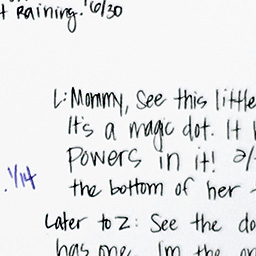 t Raining. 6/30
L: Mommy, see this little
It's a magic dot. It h
powers in it! 2/
. 1/14
the bottom of her
Later to Z: See the do
has one. I'm the on